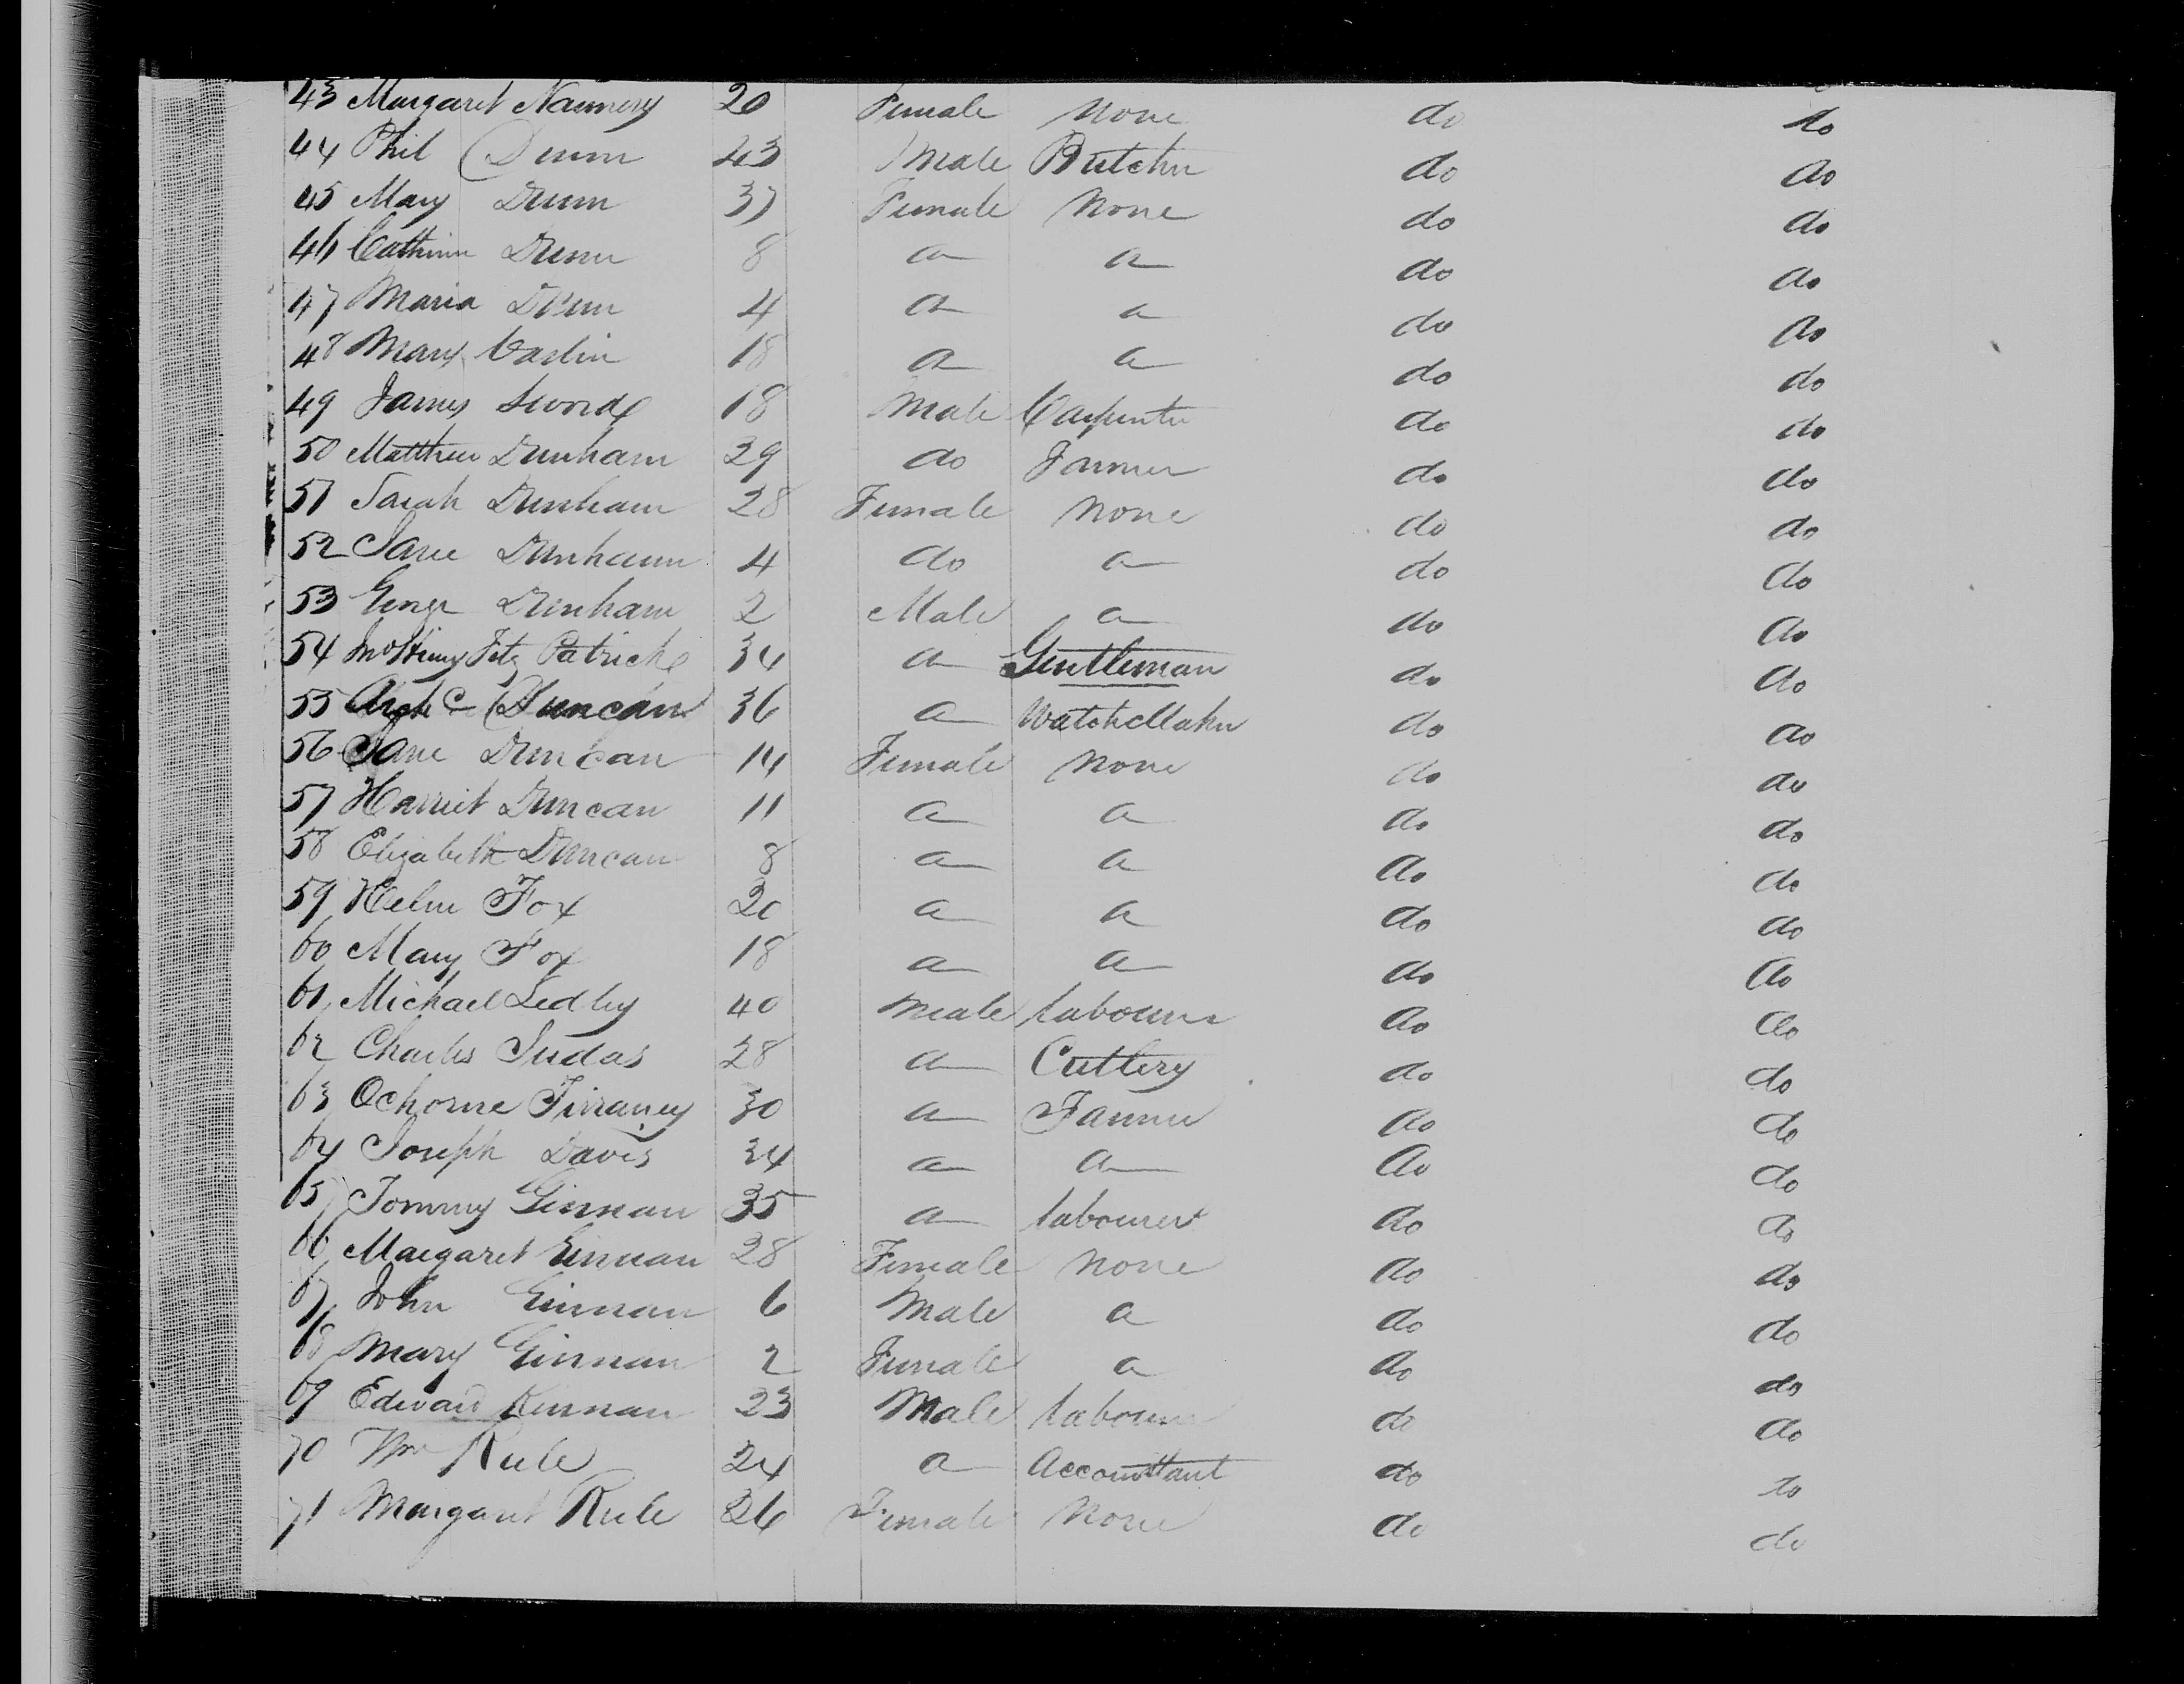 43 Margaret Nannery 20 Female None do do
44 Phil Dunn 43 Male Butcher do do
45 Mary Dunn 37 Female None do do
46 Catherine Dunn 8 a a do do
47 Maria Dunn 4 a a do do
48 Mary Carlin 18 a a do do
49 James Swords 18 Male Carpenter do do
50 Matthew Dunham 29 do Farmer do do
51 Sarah Dunham 28 Female None do do
52 Jane Dunham 4 do a do do
53 George Dunham 2 Male a do do
54 Jno Henry Fitz Patrick 34 a Gentleman do do
55 Arch C Duncan 36 a Watch Maker do do
56 Jane Duncan 14 Female None do do
57 Harriet Duncan 11 a a do do
58 Elizabeth Duncan 8 a a do do
59 Helen Fox 20 a a do do
60 Mary Fox 18 a a do do
61 Michael Ledley 40 Male labourer do do
62 Charles Judas 28 a Cutlery do do
63 30 a Farmer do do
64 Joseph Davis 34 a a do do
65 Tommy Ginnan 35 a labourer do do
66 Margaret Ginnan 28 Female None do do
67 John Ginnan 6 Male a do do
68 Mary Ginnan 2 Female a do do
69 Edward 23 Male labourer do do
70 Wm Rule 24 a Accounttant do do
71 Margaret Rule 26 Female None do do